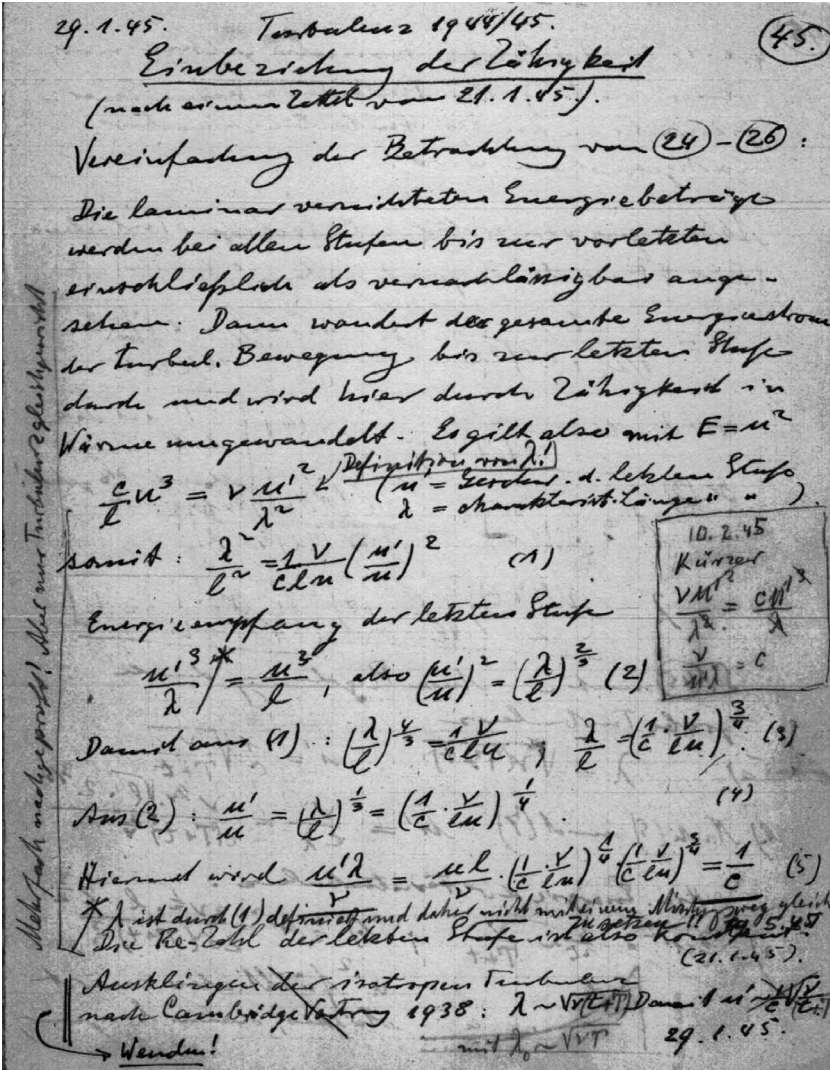 29.1.45. Turbulenz 1944/45. (45.)
Einbeziehung der Zähigkeit
(nach einem Zettel vom 21.1.45.).
Vereinfachung der Betrachtung von (24) – (26) :
Die laminar vernichteten Energiebeträge
werden bei allen Stufen bis zur vorletzten
einschließlich als vernachlässigbar ange-
sehen. Dann wandert der gesamte Energiestrom
der turbul. Bewegung bis zur letzten Stufe
durch und wird hier durch Zähigkeit in
Wärme umgewandelt. Es gilt also mit E = u²
c/l u³ = ν u'²/λ² Definition von λ! (u = Geschw. d. letzten Stufe
λ = charakterist. Länge " " )
somit : λ²/l² = 1/c ν/lu (u'/u)² (1)
10.2.45
Kürzer
νu'²/λ² = cu'³/λ
ν/u'λ = c
Energieempfang der letzten Stufe
u'³/λ * = u³/l , also (u'/u)² = (λ/l)^⅔ (2)
Damit aus (1) : (λ/l)^4/3 = 1/c ν/lu ; λ/l = (1/c · ν/lu)^¾ . (3)
Aus (2) : u'/u = (λ/l)^⅓ = (1/c · ν/lu)^¼ . (4)
Hiermit wird u'λ/ν = ul/ν · (1/c · ν/lu)^¼ (1/c ν/lu)^¾ = 1/c (5)
* λ ist durch (1) definiert und daher nicht mit einem gleich
zu setzen!! 5.45
Die Re-Zahl der letzten Stufe ist also
(21.1.45).
Ausklingen der isotropen Turbulenz
nach Cambridge Vortrag 1938 : λ ~ Damit u' ~
mit λ₀ ~ √νT 29.1.45.
→ Wenden!
Mehrfach nachgeprüft! Aber nur Turbulenzgleichgewicht